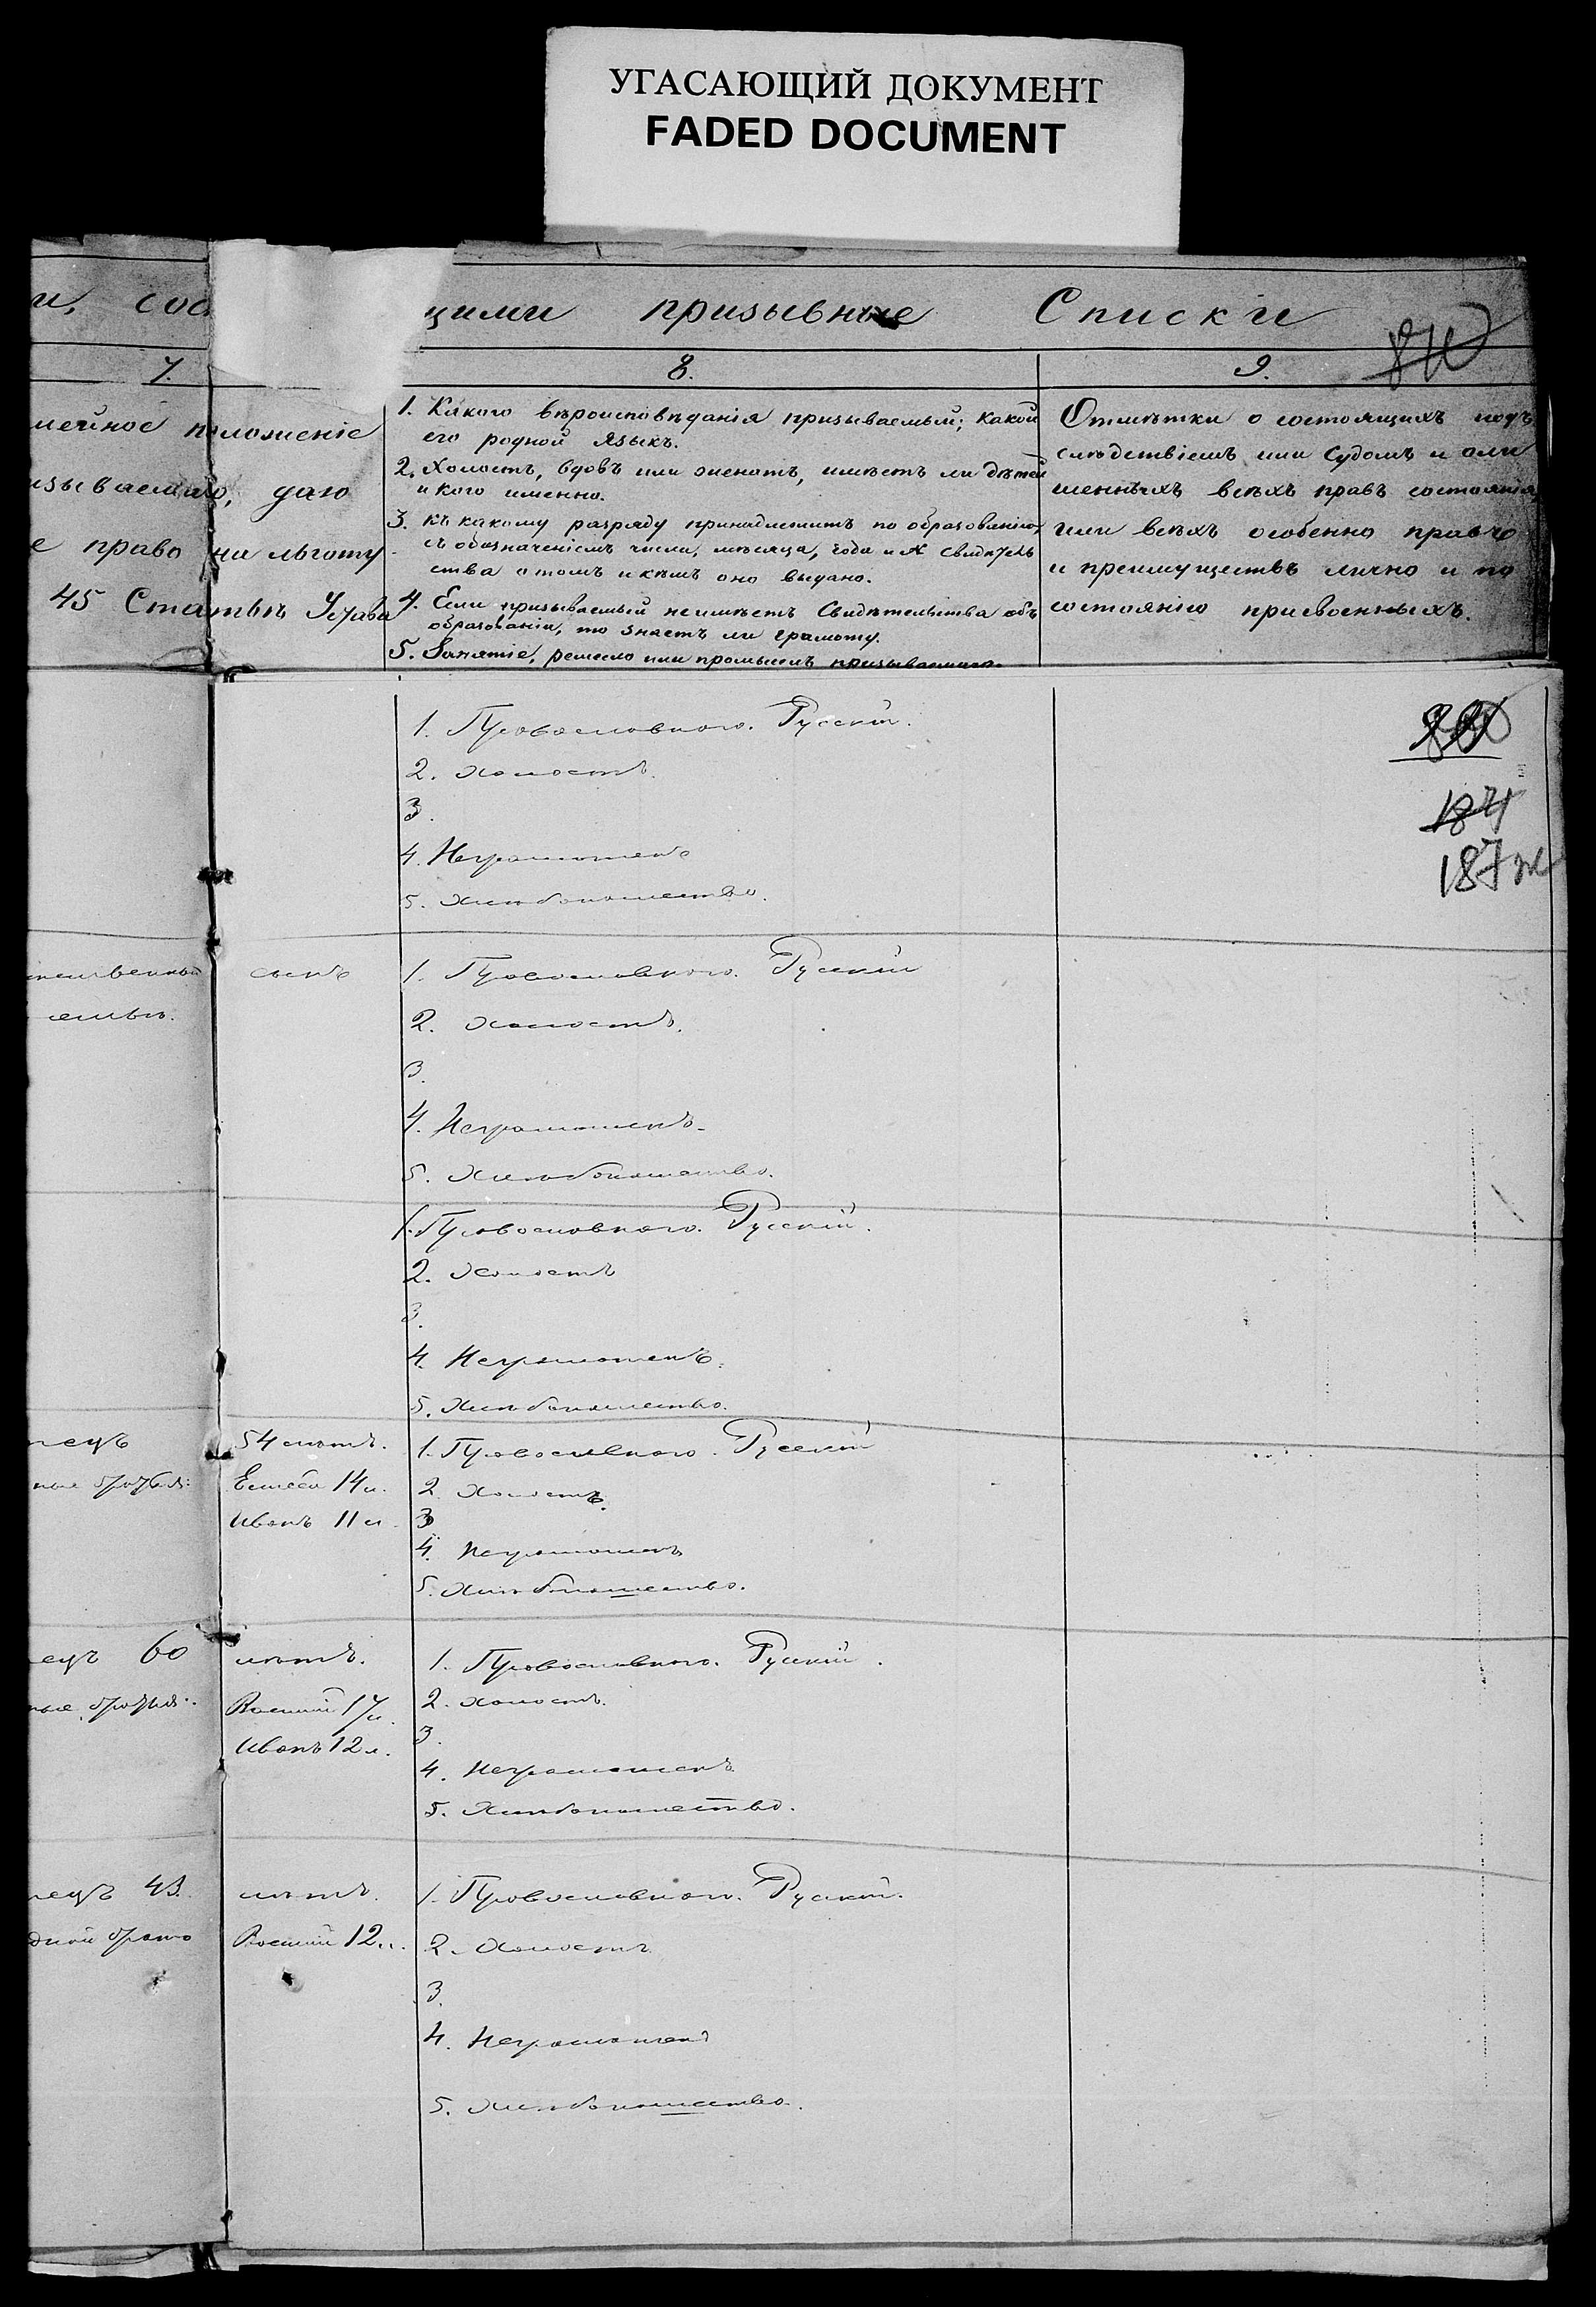 УГАСАЮЩИЙ ДОКУМЕНТ
FADED DOCUMENT
щими призывные Списки
7.
8.
9.
мейное положеніе
зываемаго, даю
е право на льготу
45 Статьѣ Устава
1. Какого вѣроисповѣданія призываемый; какой
его родной языкъ.
2. Холостъ, вдовъ или женатъ, имѣетъ ли дѣтей
и кого именно.
3. Къ какому разряду принадлежитъ по образованію,
съ обозначеніемъ числа, мѣсяца, года и № свидѣтель
ства о томъ и кѣмъ оно выдано.
4. Если призываемый неимѣетъ Свидѣтельства объ
образованіи, то знаетъ ли грамоту.
5. Занятіе, ремесло или промыселъ призываемаго.
Отмѣтки о состоящихъ подъ
слѣдствіемъ или Судомъ и оли
шенныхъ всѣхъ правъ состоянія
или всѣхъ особенно правъ
и преимуществъ лично и по
состоянію присвоенныхъ.
1. Православнаго. Русскій.
2. Холостъ.
3.
4. Неграмотенъ
5. Хлѣбопашество.
184
187 ж
сынъ
1. Православнаго. Русскій
2. Холостъ.
3.
4. Неграмотенъ.
5. Хлѣбопашество.
1. Православнаго. Русскій.
2. Холостъ
3.
4. Неграмотенъ.
5. Хлѣбопашество.
54 лѣтъ.
14 л.
Иванъ 11 л.
1. Православнаго. Русскій
2. Холостъ.
3
4. Неграмотенъ
5. Хлѣбопашество.
ецъ 60 лѣтъ.
Василій 17 л.
Иванъ 12 л.
1. Православнаго. Русскій.
2. Холостъ.
3.
4. Неграмотенъ
5. Хлѣбопашество.
ецъ 43. лѣтъ.
дной братъ Василій 12 л.
1. Православнаго. Русскій.
2. Холостъ
3.
4. Неграмотенъ
5. Хлѣбопашество.